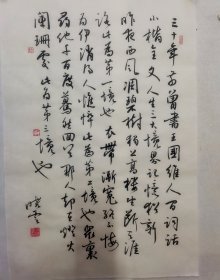 三十年前曾書王國維人间詞話
小楷全文人生三大境界记憶犹新
昨夜西风凋碧樹独上高楼望断天涯
路此为第一境也衣帶漸宽终不悔
为伊消得人憔悴此为第二境也衆裏
尋他千百度驀然回首那人却在燈火
阑珊處此为第三境也